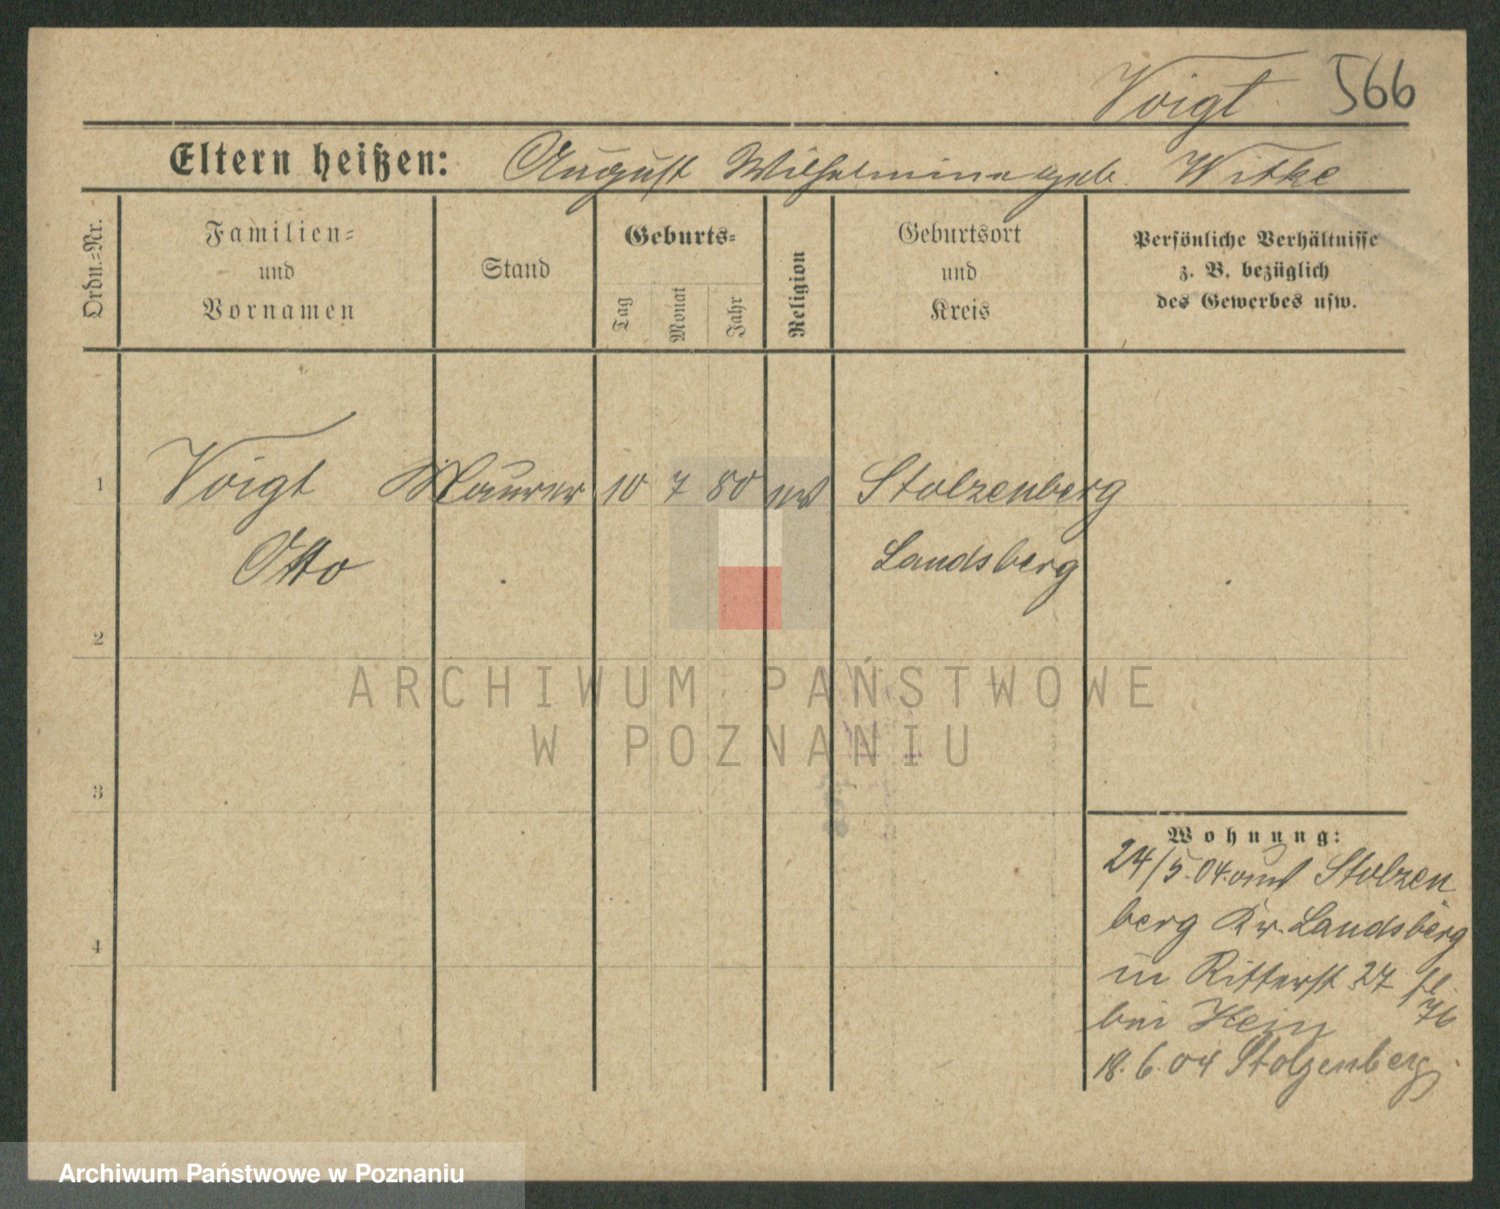 Voigt 566
Eltern heißen: August Wilhelmine geb. Witke
Ordn.-Nr.
Familien-
und
Vornamen
Stand
Geburts-
Tag
Monat
Jahr
Religion
Geburtsort
und
Kreis
Persönliche Verhältnisse
z. B. bezüglich
des Gewerbes usw.
1 Voigt Maurer 10 7 80 Stolzenberg
Otto Landsberg
2
3
4
Wohnung:
24/5.04. aus Stolzen
berg Kr. Landsberg
in Ritterst 27
bei Hein 76
18.6.04 Stolzenberg
ARCHIWUM PAŃSTWOWE
W POZNANIU
Archiwum Państwowe w Poznaniu